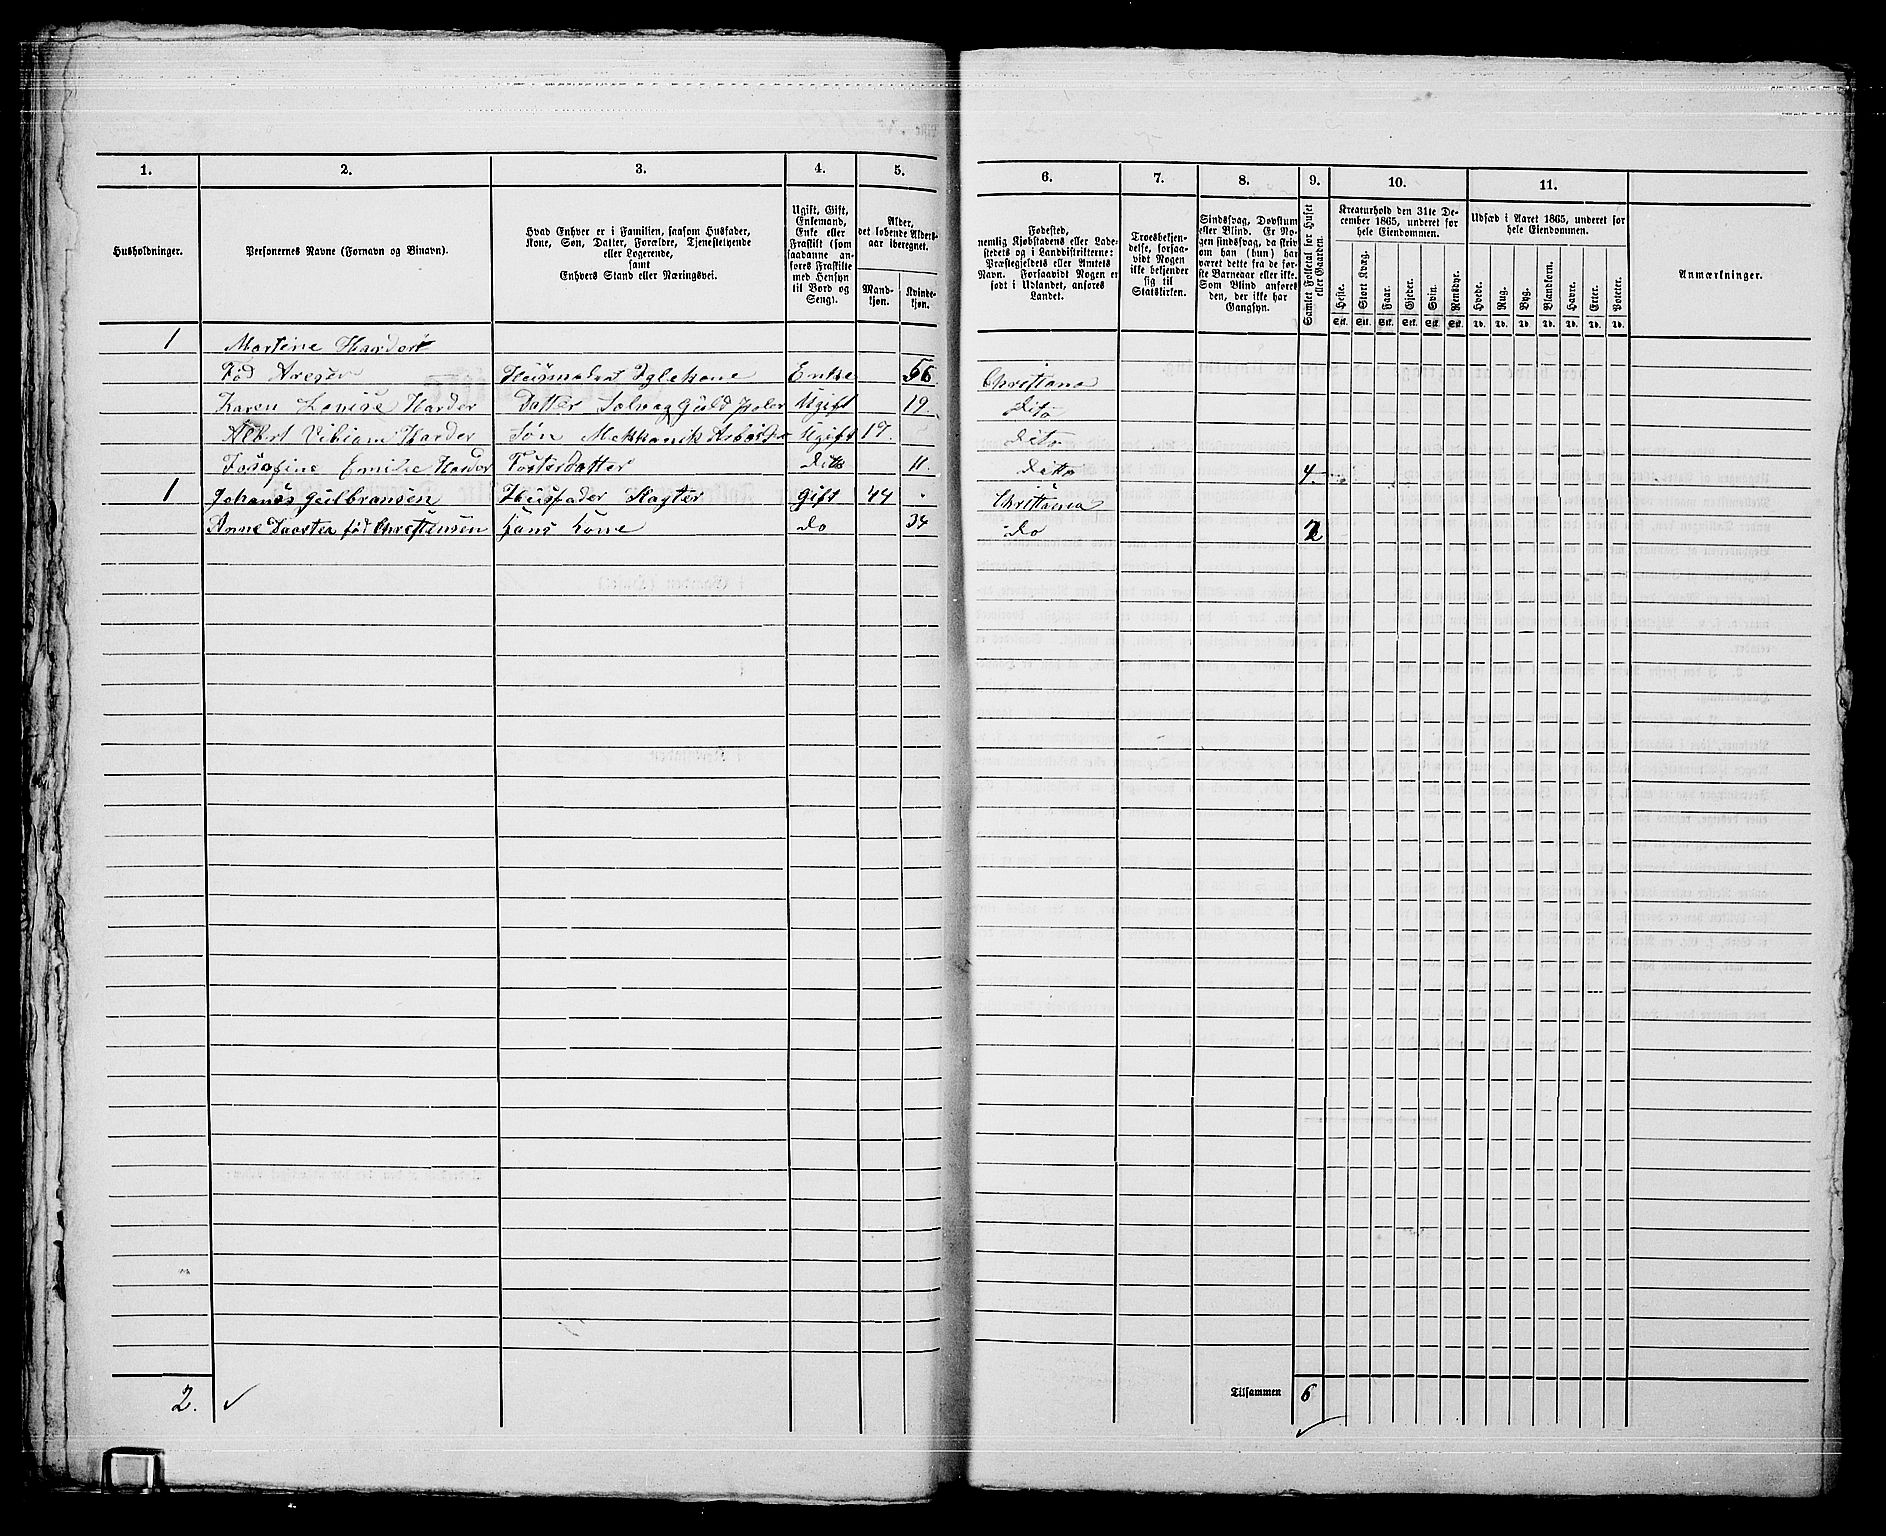 1. 2. 3. 4. 5. 6. 7. 8. 9. 10. 11.
Husholdninger.
Personernes Navne (Fornavn og Binavn).
Hvad Enhver er i Familien, saasom Husfader,
Kone, Søn, Datter, Forældre, Tjenestetyende
eller Logerende,
samt
Enhvers Stand eller Næringsvei.
Ugift, Gift,
Enkemand,
Enke eller
Fraskilt (som
saadanne an-
føres Fraskilte
med Hensyn
til Bord og
Seng).
Alder,
det løbende Alders-
aar iberegnet.
Mand-
kjøn.
Kvinde-
kjøn.
Fødested,
nemlig Kjøbstadens eller Lade-
stedets og i Landdistrikterne:
Præstegjeldets eller Amtets
Navn. Forsaavidt Nogen er
født i Udlandet, anføres
Landet.
Troesbekjen-
delse, forsaa-
vidt Nogen
ikke bekjender
sig til
Statskirken.
Sindssvag, Døvstum
eller Blind. Er No-
gen sindssvag, da skriv
om han (hun) har
været dette fra de før-
ste Barneaar eller ikke.
Som Blind anføres
den, der ikke har
Gangsyn.
Samlet Folketal for Huset
eller Gaarden.
Kreaturhold den 31te De-
cember 1865, underet for
hele Eiendommen.
Heste. Stort Kvæg. Faar. Gjeder. Svin. Rensdyr.
Stk. Stk. Stk. Stk. Stk. Stk.
Udsæd i Aaret 1865, underet for
hele Eiendommen.
Hvede. Rug. Byg. Blandkorn. Havre. Erter. Poteter.
Td. Td. Td. Td. Td. Td. Td.
Anmærkninger.
1 Martine Harder
Fød Enke 56 Christiana
Karen Lovise Harder Datter Ugift 19. Dito
Albert Harder Søn Ugift 17. Dito
Josefine Emilie Harder Fosterdatter Ditto 11. Ditto 4.
1 Johanes Gulbransen Husfader Slagter Gift 44 Christiania
Anne fød Christensen Hans Kone Do 34 Do 2
2.
Tilsammen 6